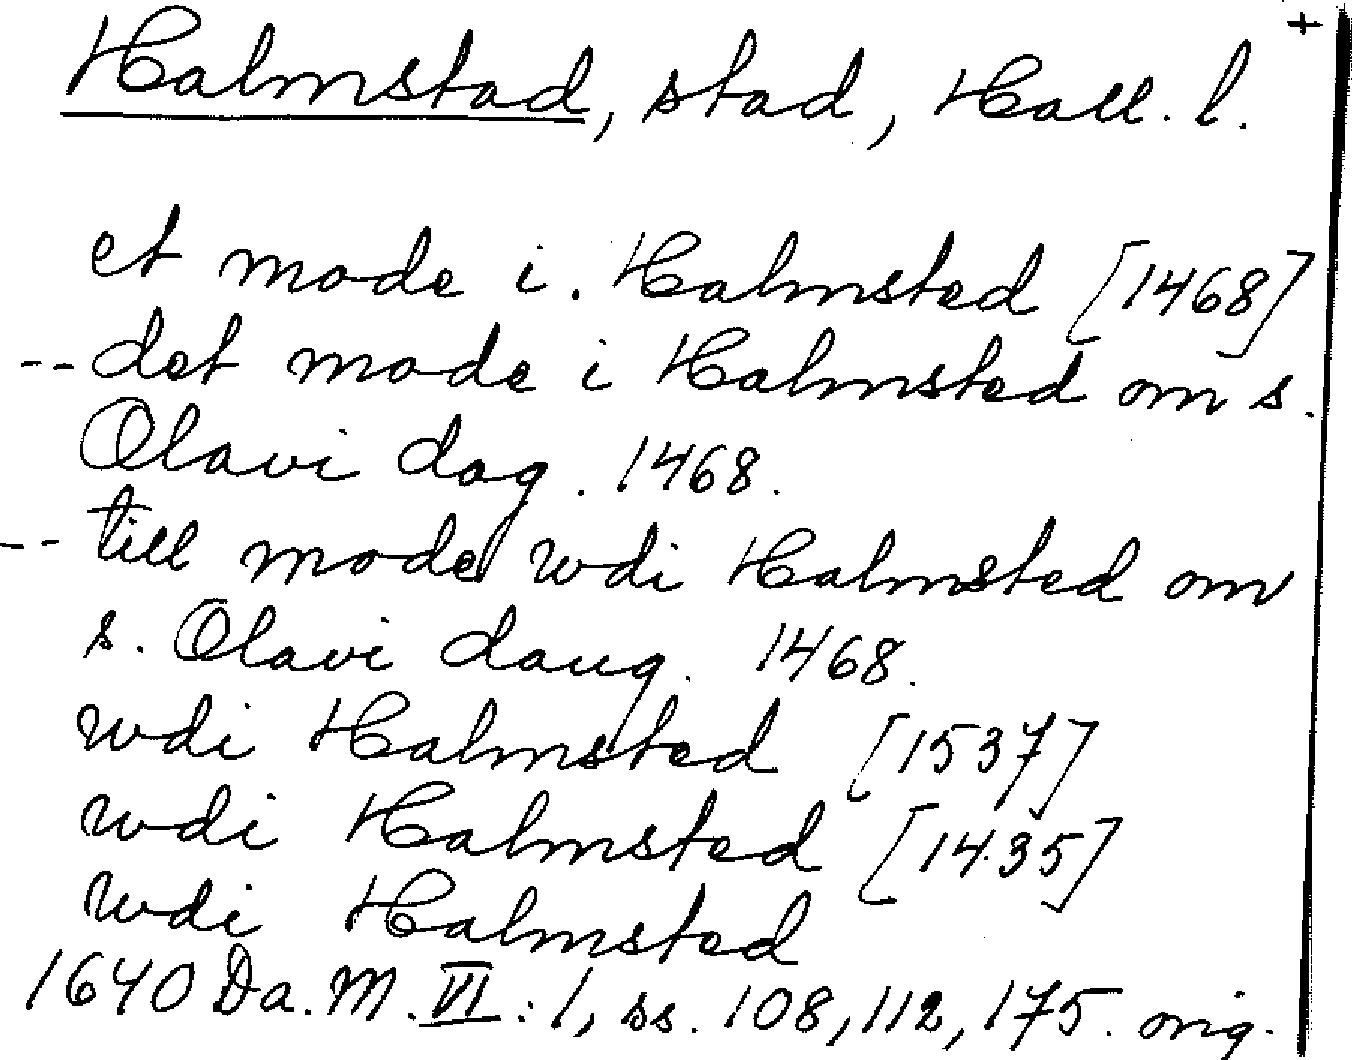 +
Halmstad, stad, Hall. l.
et mode i. Halmsted [1468]
-- det mode i Halmsted om s.
Olavi dag. 1468.
-- till mode wdi Halmsted om
s. Olavi daug. 1468.
wdi Halmsted [1537]
wdi Halmsted [1435]
wdi Halmsted
1640 Da. M. VI: 1, ss. 108, 112, 175. orig.